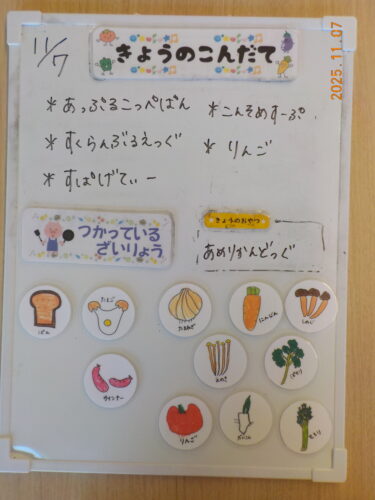 11/7
きょうのこんだて
2025.11.07
*あっぷるこっぺぱん
*こんそめすーぷ
*すくらんぶるえっぐ
*りんご
*すぱげてぃー
つかっている
ざいりょう
きょうのおやつ
あめりかんどっぐ
ぱん
たまご
たまねぎ
にんじん
しめじ
ウインナー
えのき
ぱせり
りんご